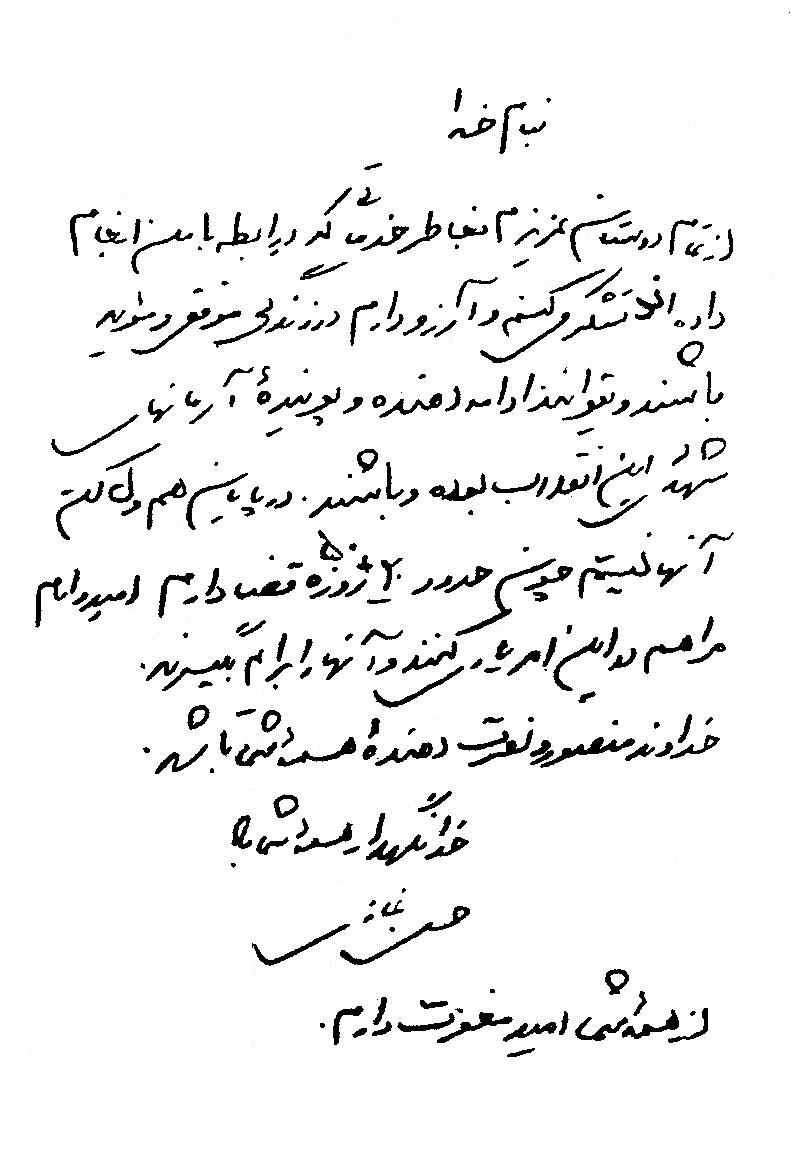 بنام خدا
از تمام دوستان عزیزم بخاطر خدماتی که در رابطه با من انجام
داده‌اند تشکر می‌کنم و آرزو دارم در زندگی موفق و مؤید
باشند و بتوانند ادامه دهنده و پویندهٔ آرمانهای
شهدای این انقلاب بوده و باشند. در پایین هم
آنها نیستم چون حدود ۲۰ روزه قضا دارم امیدوارم
مرا هم در این امر یاری کنند و آنها را برایم بگیرند.
خداوند منصور و نصرت دهندهٔ همه شما باشد.
خدا نگهدار همه شما
حسن
از همه شما امید مغفرت دارم.